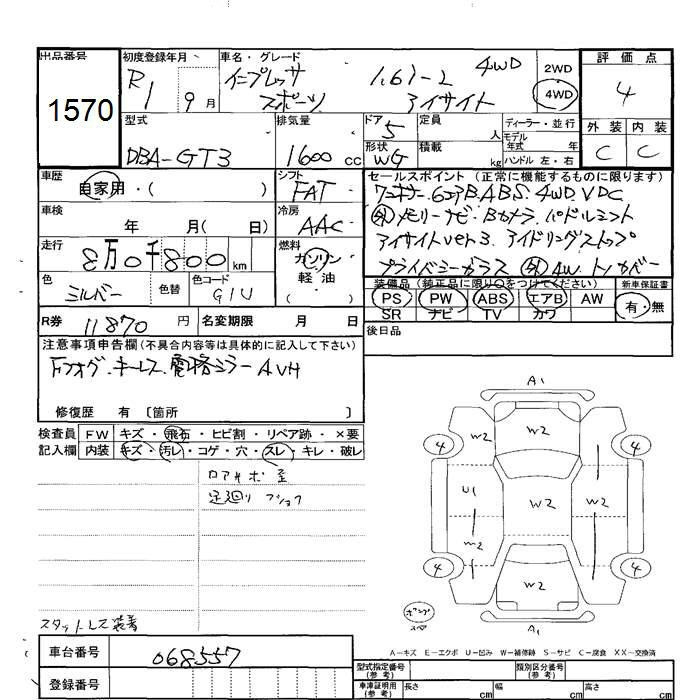 出品番号 初度登録年月 車名・グレード 評価点
1570 R1 9月 インプレッサ スポーツ 1.6i-L 4WD アイサイト 2WD 4WD 4
外装 内装
C C
型式 排気量 ドア 定員 人 ディーラー・並行
DBA-GT3 1600cc 5 モデル年式 年
形状 WG 積載 kg ハンドル 左・右
車歴 自家用・( ) シフト FAT
セールスポイント(正常に機能するものに限ります)
ワンオーナー 6エアB.ABS.4WD.VDC
車検 年 月( 日) 冷房 AAC
外メモリーナビ・Bカメラ パドルシフト
アイサイトver3. アイドリングストップ
走行 8万0千800km 燃料 ガソリン 軽油 ( )
プライバシーガラス 外AW トノカバー
色 シルバー 色替 色コード G1U
装備品(純正品に限り○をつけてください) 新車保証書
PS PW ABS エアB AW 有・無
SR ナビ TV カワ
R券 11870円 名変期限 月 日
後日品
注意事項申告欄(不具合内容等は具体的に記入して下さい)
Fフォグ.キーレス.電格ミラー AVH
修復歴 有 〔箇所 〕
検査員 FW キズ・飛石・ヒビ割・リペア跡・×要
記入欄 内装 キズ・汚レ・コゲ・穴・スレ・キレ・破レ
ロアサポ歪
足廻り ブショク
A1
4 W2 W2 W2 4
U1 W2 W2
W2
4 W2 4
A1
スペア
スタットレス装着
A-キズ E-エクボ U-凹み W-補修跡 S-サビ C-腐食 XX-交換済
車台番号 068557
登録番号
型式指定番号(参考) 類別区分番号(参考)
車庫証明用(参考) 長さ cm 幅 cm 高さ cm